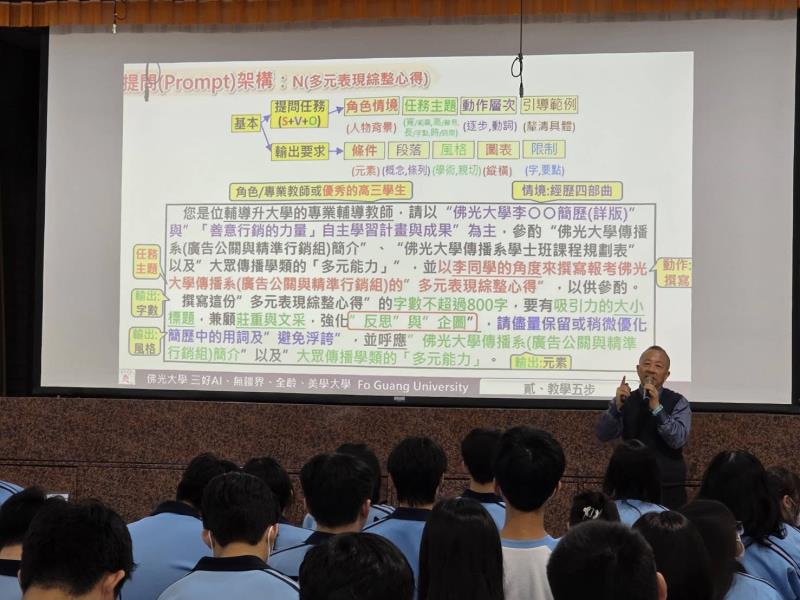 提問(Prompt)架構：N(多元表現綜整心得)
基本
提問任務
(S+V+O)
角色情境 任務主題 動作層次 引導範例
(人物背景)
(逐步,動詞) (釐清具體)
輸出要求
條件 段落 風格 圖表 限制
(元素) (概念,條列) (學術,親切) (縱橫) (字,要點)
角色/專業教師或優秀的高三學生
情境:經歷四部曲
您是位輔導升大學的專業輔導教師，請以“佛光大學李〇〇簡歷(詳版)”
與”「善意行銷的力量」自主學習計畫與成果”為主，參酌“佛光大學傳播
系(廣告公關與精準行銷組)簡介”、“佛光大學傳播系學士班課程規劃表”
以及”大眾傳播學類的「多元能力」”，並以李同學的角度來撰寫報考佛光
大學傳播系(廣告公關與精準行銷組)的”多元表現綜整心得”，以供參酌。
撰寫這份”多元表現綜整心得”的字數不超過800字，要有吸引力的大小
標題，兼顧莊重與文采，強化”反思”與”企圖”，請儘量保留或稍微優化
簡歷中的用詞及”避免浮誇”，並呼應”佛光大學傳播系(廣告公關與精準
行銷組)簡介”以及”大眾傳播學類的「多元能力」。
任務
主題
輸出:
字數
輸出:
風格
動作:
撰寫
輸出:元素
佛光大學 三好AI、無疆界、全齡、美學大學 Fo Guang University
貳、教學五步